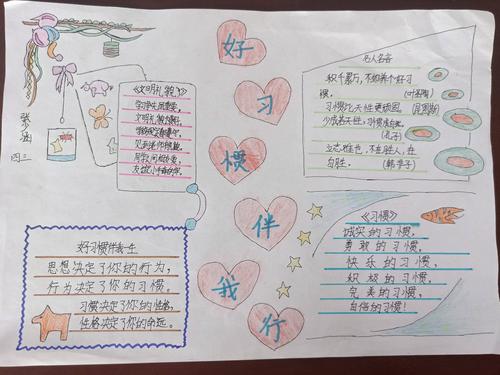 好
习
惯
伴
我
行
四三
《文明礼貌》
名人名言
积千累万，不如养个好习
惯。
习惯比天性更顽固。
少成若天性，习惯成自然。
(孔子)
立志难也，不在胜人，在
自胜。
(韩非子)
好习惯伴我一生
思想决定了你的行为，
行为决定了你的习惯。
习惯决定了你的性格，
性格决定了你的命运。
《习惯》
诚实的习惯，
勇敢的习惯，
快乐的习惯，
积极的习惯，
完美的习惯，
自信的习惯！